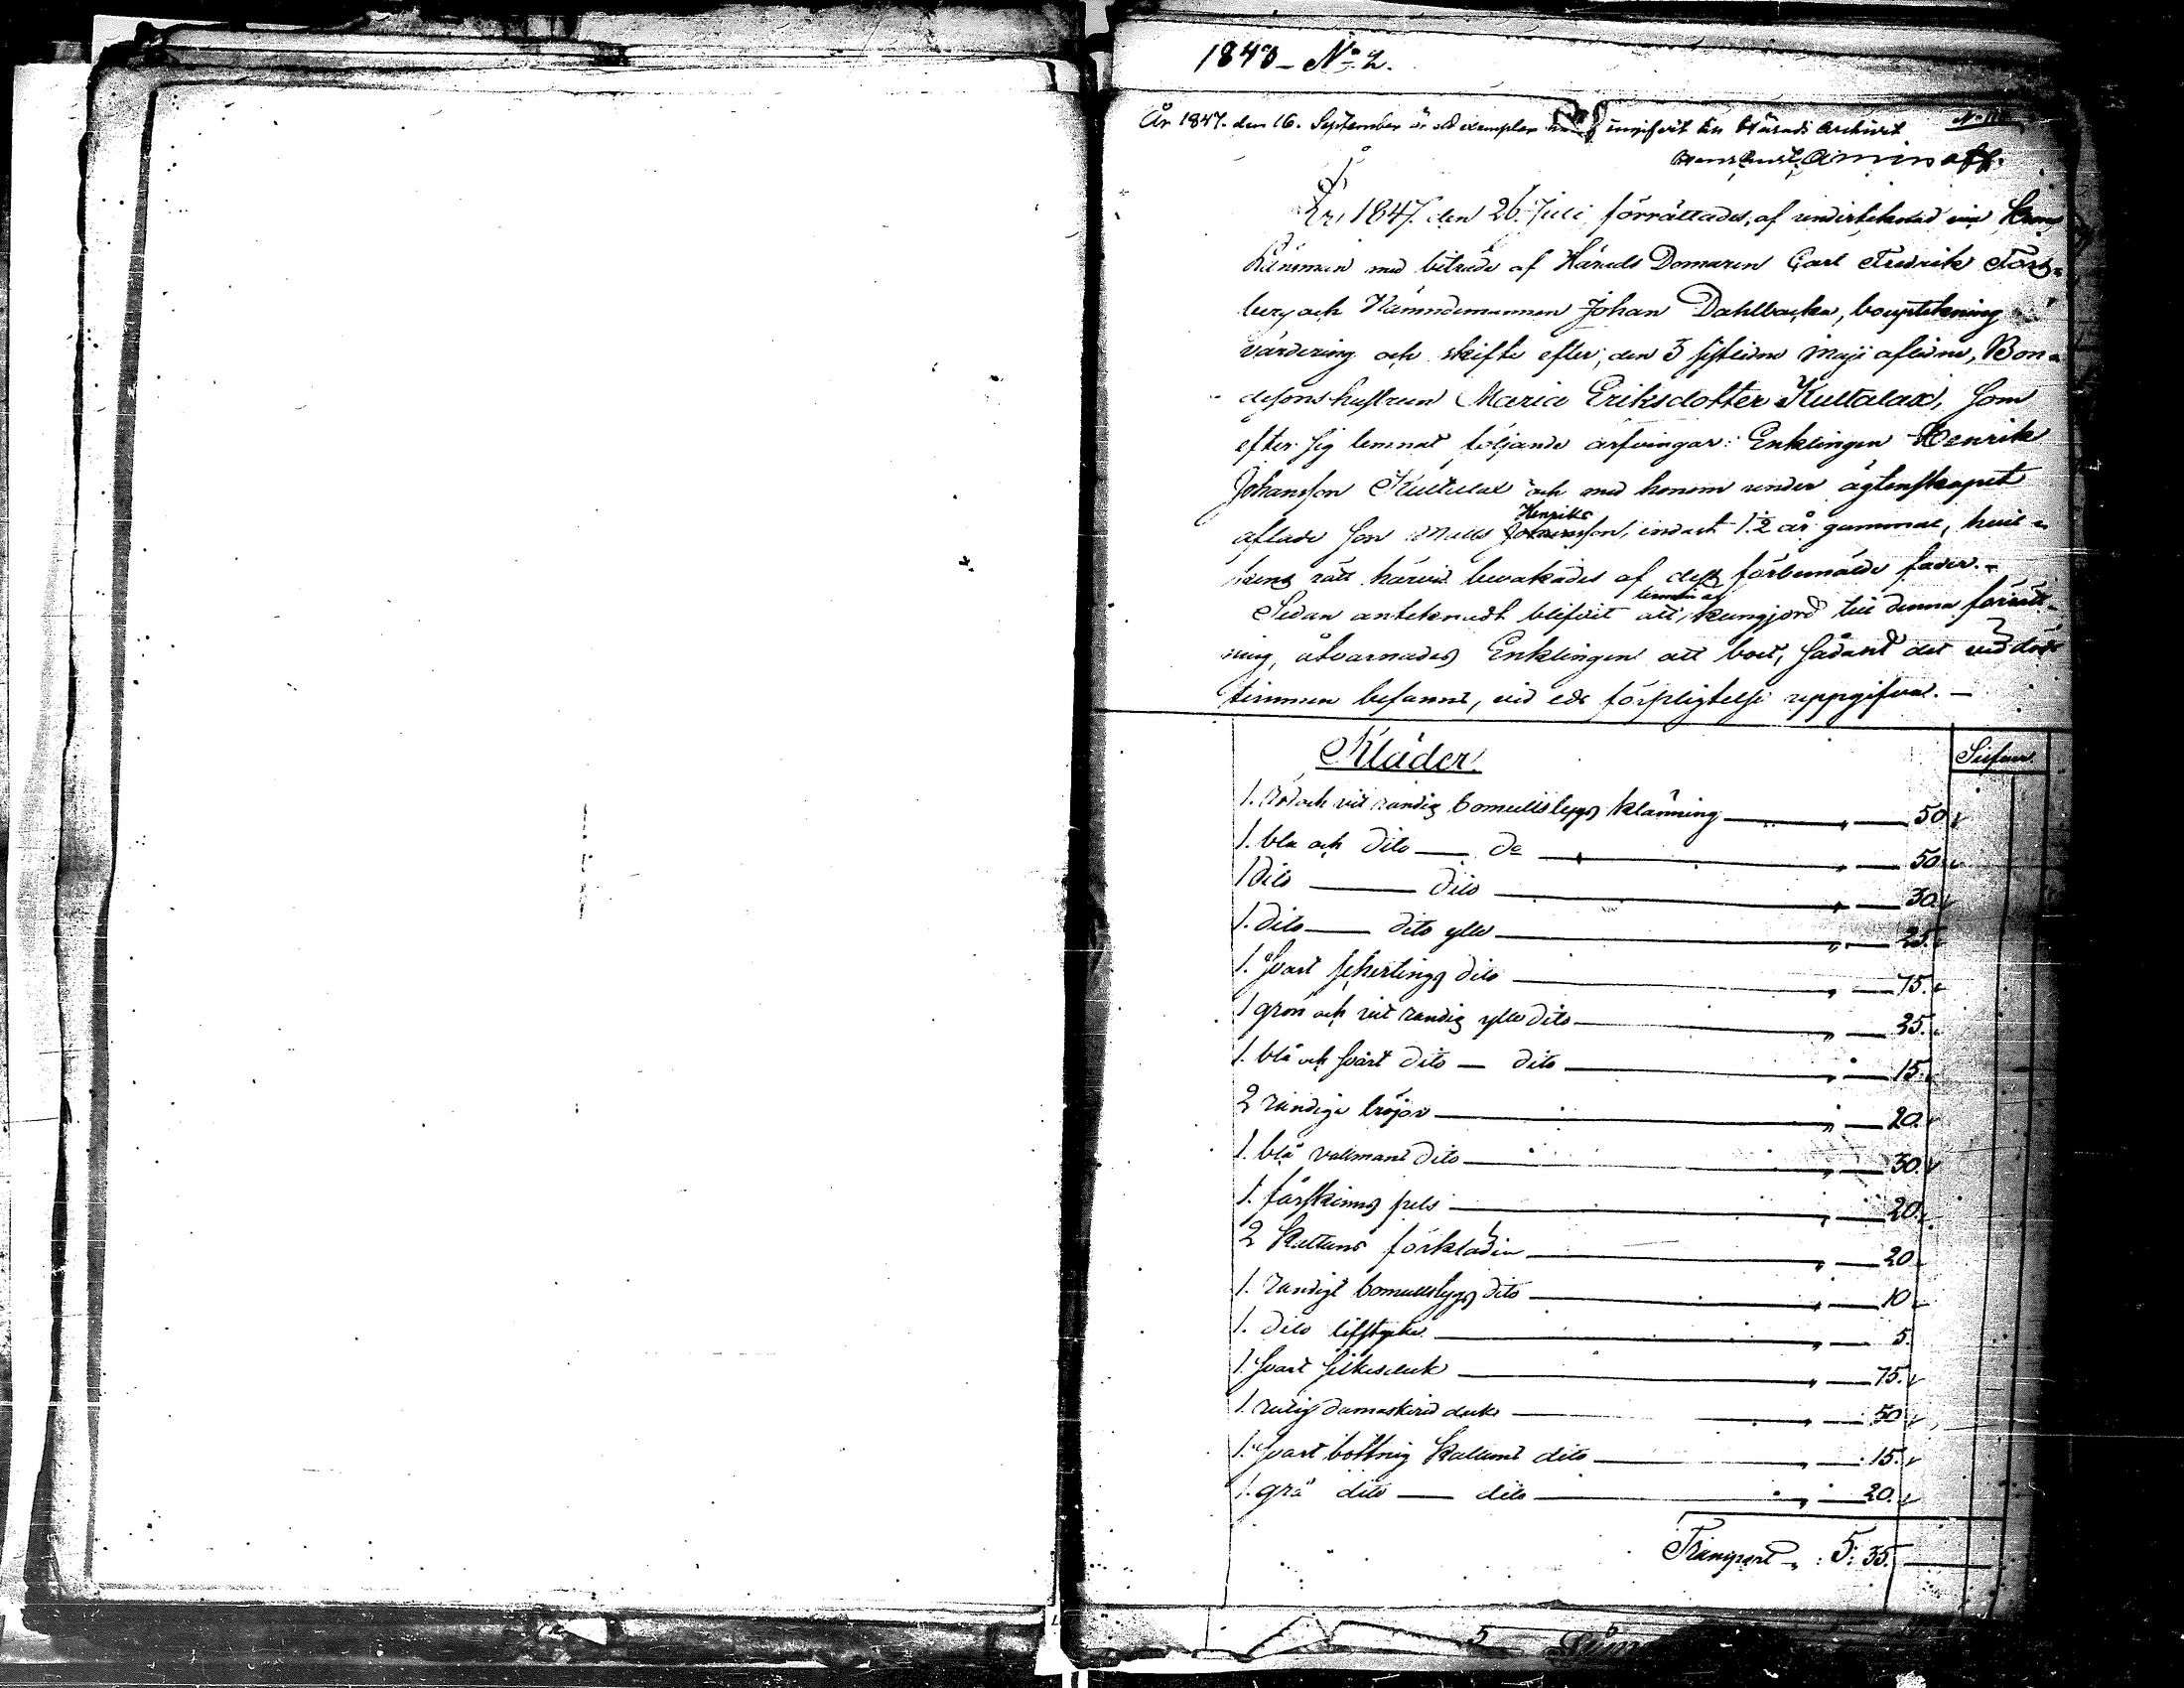 1843 - No 2.
År 1847. den 16. September är ett exemplar ingifvit till Härads Archivet
Aminoff.
År 1847. den 26. Juli, förrättades, af undertecknad med
Länsman med biträde af Härads Domaren Carl Fredrik Fors-
berg och Nämndemannen Johan Dahlbacka, boupptekning
värdering och skifte efter, den 3 sistledne Maji aflidne, Bon-
desonshustrun Maria Eriksdotter Kultalax, som
efter sig lemnat följande arfvingar: Enklingen Henrik
Johansson Kultalax och med honom under ägtenskapet
aflade son Matts Henriksson, endast 1½ år gammal, hvil-
kens rätt härvid bevakades af dess förbemälde fader. -
Sedan anteknadt blifvit att, kungjord till denna förrätt-
ning, åtvarnades Enklingen att boet, sådant det vid döds
timmen befanns, vid eds förpligtelse uppgifva. -
Kläder. Silfver
1. Röd och vit randig bomullstygs klänning " 50
1. blå och dito do " 50
1 dito dito " 30
1. dito dito ylle " 25.
1. svart schertings dito " 75.
1 grön och vit randig ylle dito " 35.
1. blå och svart dito - dito " 15.
2 randiga tröjor " 20.
1. blå vallmans dito " 30.
1. fårskinns pels " 20.
2 Kattuns förkläden " 20
1. randigt bomullstygs dito " 10
1. dito lifstycke " 5.
1. svart silkesduk " 75.
1. rutig damaskerad duk " 50
1. svart bottnig Kattuns dito " 15.
1. grå dito dito " 20.
Transport " 5: 35.